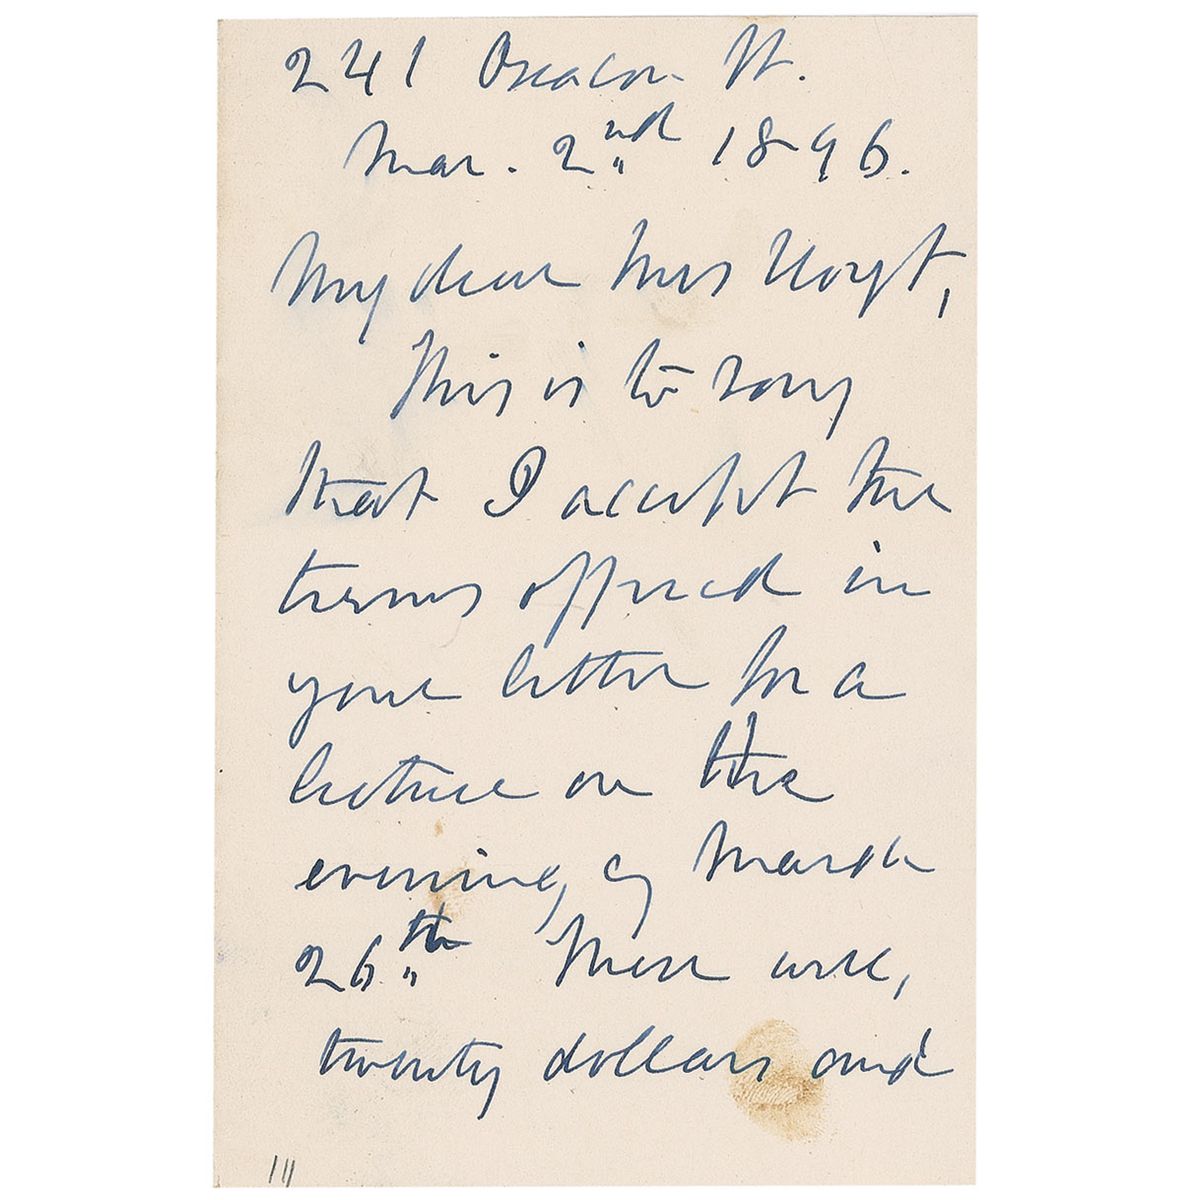 241 Beacon St.
Mar. 2nd 1896.
My dear Mrs Hoyt,
This is to say
that I accept the
terms offered in
your letter for a
lecture on the
evening of March
26th These were,
twenty dollars and
111